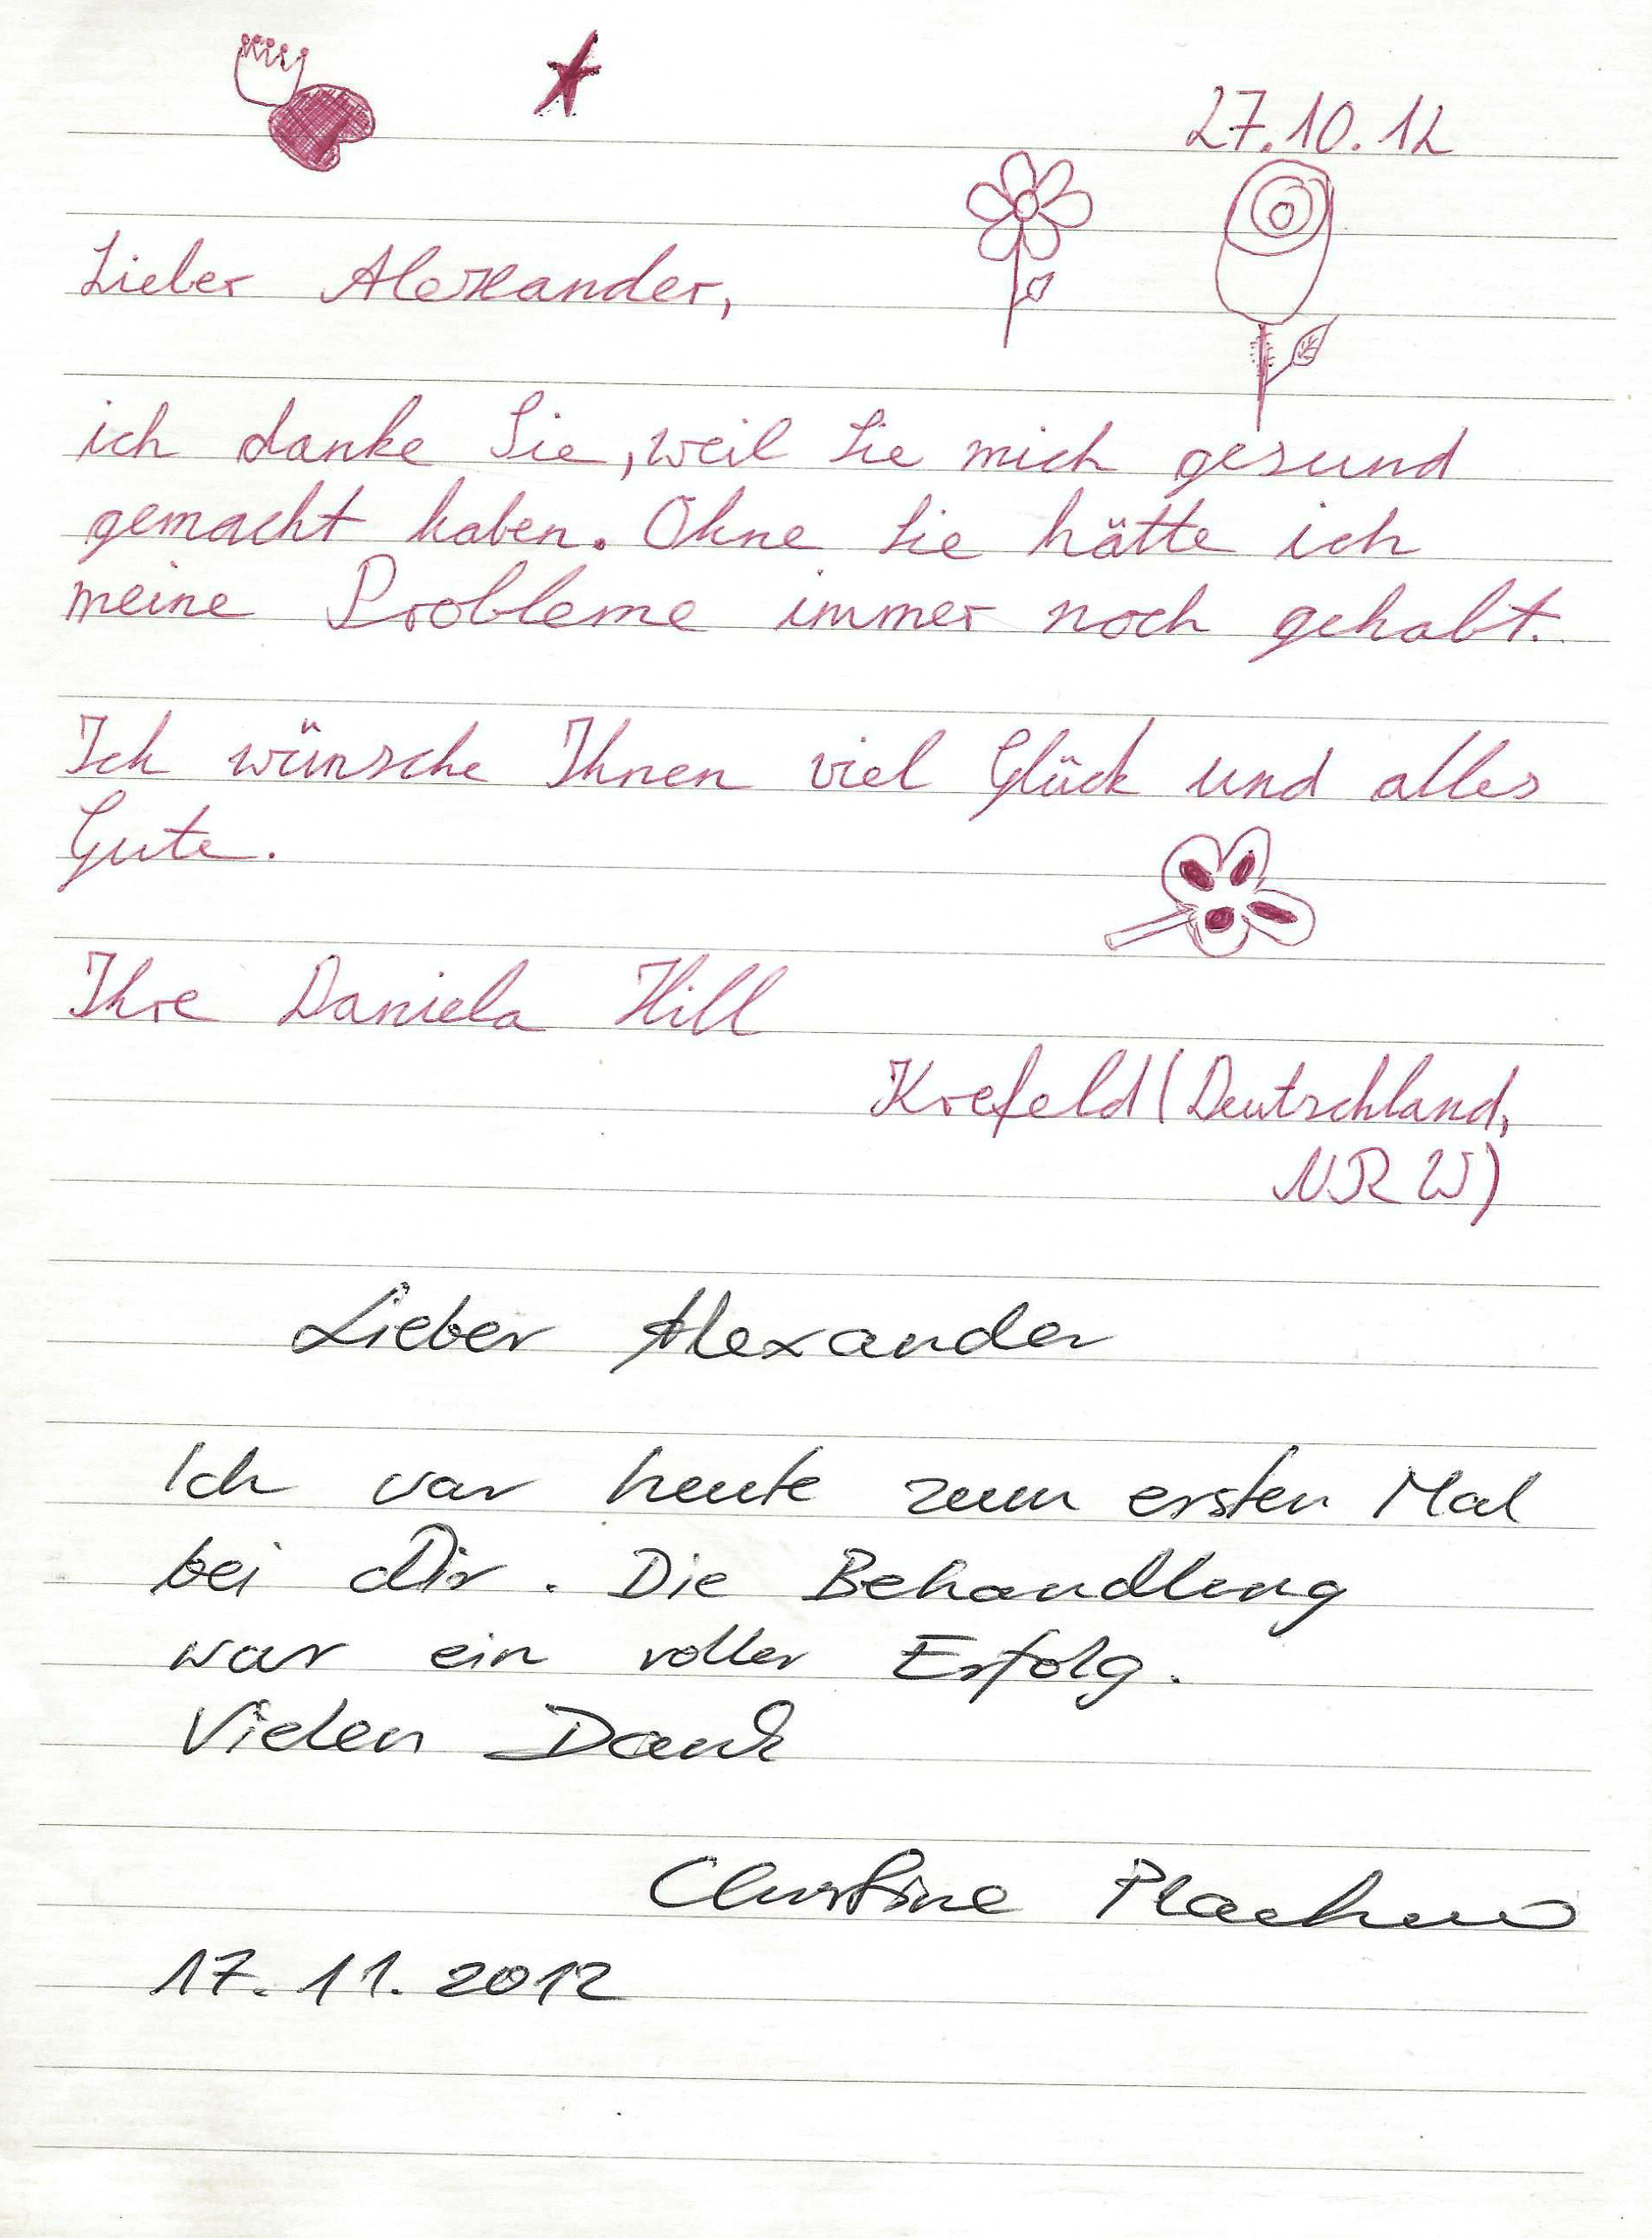 27.10.12
Lieber Alexander,
ich danke Sie, weil Sie mich gesund
gemacht haben. Ohne Sie hätte ich
meine Probleme immer noch gehabt.
Ich wünsche Ihnen viel Glück und alles
Gute.
Ihre Daniela Hill
Krefeld (Deutschland,
NRW)
Lieber Alexander
Ich war heute zum ersten Mal
bei Dir. Die Behandlung
war ein voller Erfolg.
Vielen Dank
Christine
17.11.2012